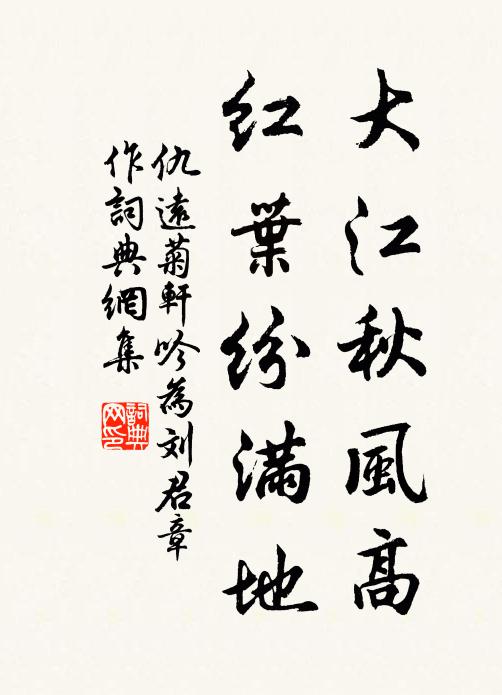 大江秋風高
红葉纷满地
仇遠菊軒吟為刘君章
作詞典網集
詞典
网印